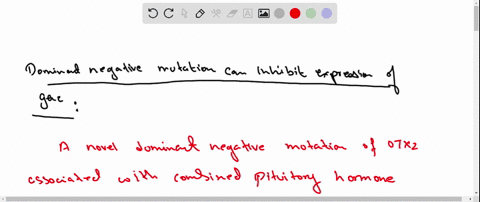 Dominad negative mutation can inhibit expression of
gene :
A novel dominant negative motation of OTX2
associated with combined pituitory hormone